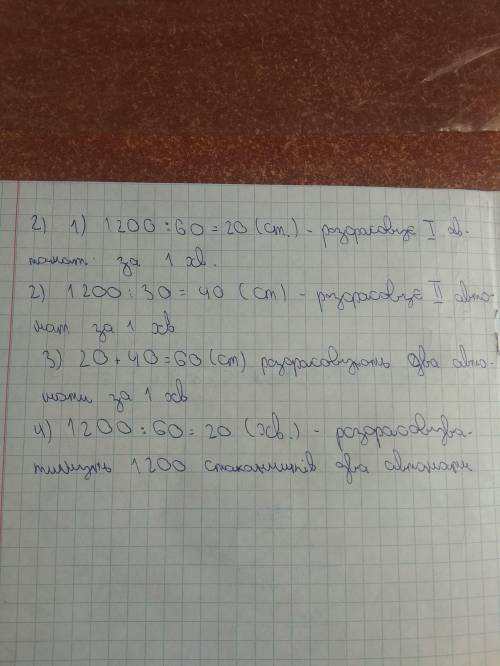 2) 1) 1200 : 60 = 20 (ст.) - розфасовує I ав-
томат за 1 хв.
2) 1200 : 30 = 40 (ст) - розфасовує II авто-
мат за 1 хв
3) 20 + 40 = 60 (ст) розфасовують два авто-
мати за 1 хв
4) 1200 : 60 = 20 (хв.) - розфасовува-
тимуть 1200 стаканчиків два автомати